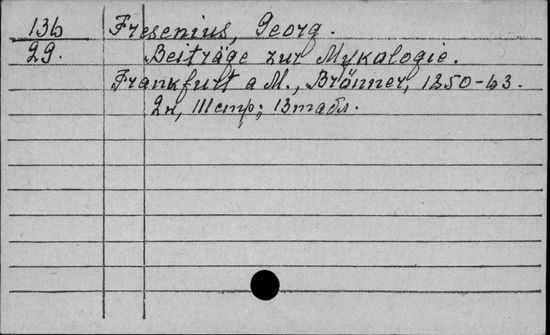 136 Fresenius, Georg.
29. Beiträge zur Mykologie.
Frankfurt a M., Brönner, 1850-63.
2н, 111стр; 13табл.